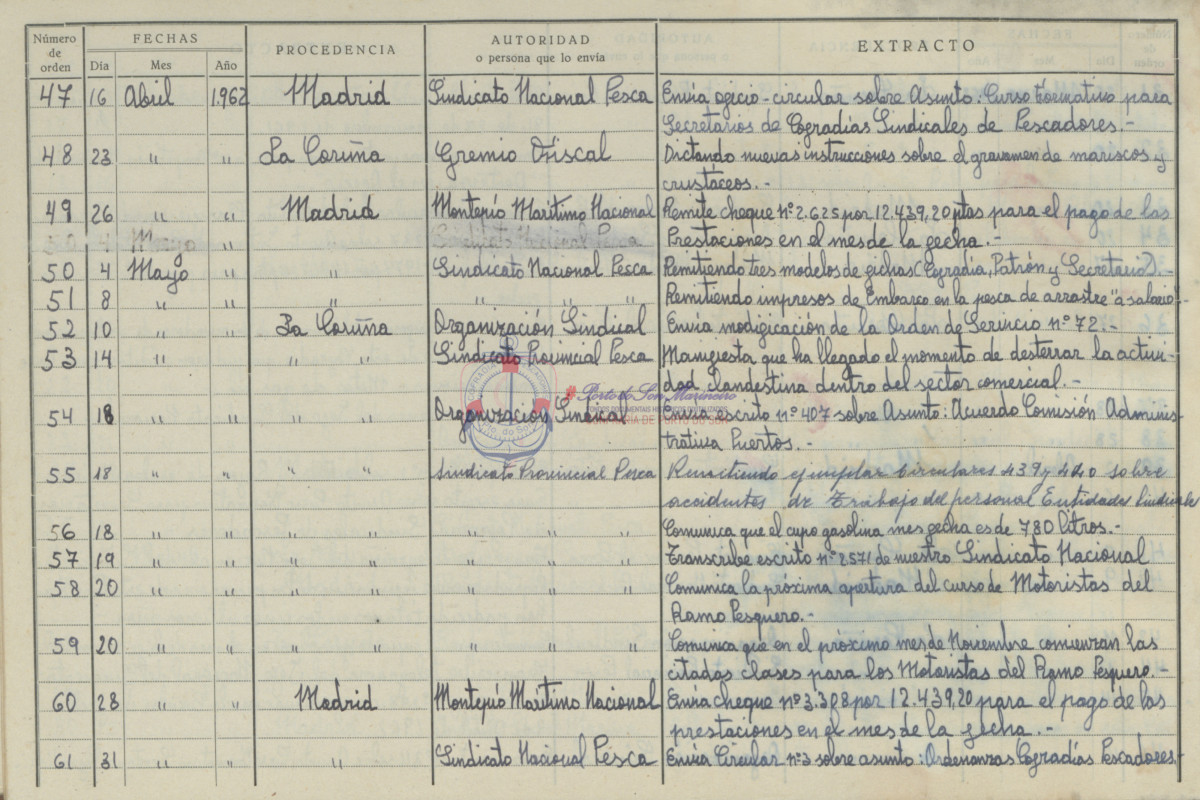 Número de orden FECHAS PROCEDENCIA AUTORIDAD o persona que lo envía EXTRACTO
Dia Mes Año
47 16 Abril 1.962 Madrid Sindicato Nacional Pesca Envia oficio-circular sobre Asunto: Curso formativo para
Secretarios de Cofradías Sindicales de Pescadores.-
48 23 " " La Coruña Gremio Fiscal Dictando nuevas instrucciones sobre el gravamen de mariscos y
crustáceos.-
49 26 " " Madrid Montepío Marítimo Nacional Remite cheque nº 2.625 por 12.439,20 ptas para el pago de las
50 4 Mayo " Sindicato Nacional Pesca Prestaciones en el mes de la fecha.-
50 4 Mayo " " Sindicato Nacional Pesca Remitiendo tres modelos de fichas (Cofradía, Patrón y Secretario).-
51 8 " " " " " " Remitiendo impresos de Embarco en la pesca de arrastre "a salario".-
52 10 " " La Coruña Organización Sindical Envia modificación de la Orden de Servicio nº 72.-
53 14 " " " " Sindicato Provincial Pesca Manifiesta que ha llegado el momento de desterrar la activi-
dad clandestina dentro del sector comercial.-
54 18 " " " " Organización Sindical Envia escrito nº 407 sobre Asunto: Acuerdo Comisión Adminis-
trativa Puertos.-
55 18 " " " " Sindicato Provincial Pesca Remitiendo ejemplar Circulares 439 y 440 sobre
accidentes de Trabajo del personal Entidades Sindicales
56 18 " " " " " " " Comunica que el cupo gasolina mes fecha es de 780 litros.-
57 19 " " " " " " " Transcribe escrito nº 2571 de nuestro Sindicato Nacional
58 20 " " " " " " " Comunica la próxima apertura del curso de Motoristas del
Ramo Pesquero.-
59 20 " " " " " " " Comunica que en el próximo mes de Noviembre comienzan las
citadas clases para los Motoristas del Ramo Pesquero.-
60 28 " " Madrid Montepío Marítimo Nacional Envia cheque nº 3.308 por 12.439,20 para el pago de las
prestaciones en el mes de la fecha.-
61 31 " " " Sindicato Nacional Pesca Envia Circular nº 3 sobre asunto: Ordenanzas Cofradías Pescadores.-
Porto do Son Marineiro
CONFRARÍA DE PORTO DO SON